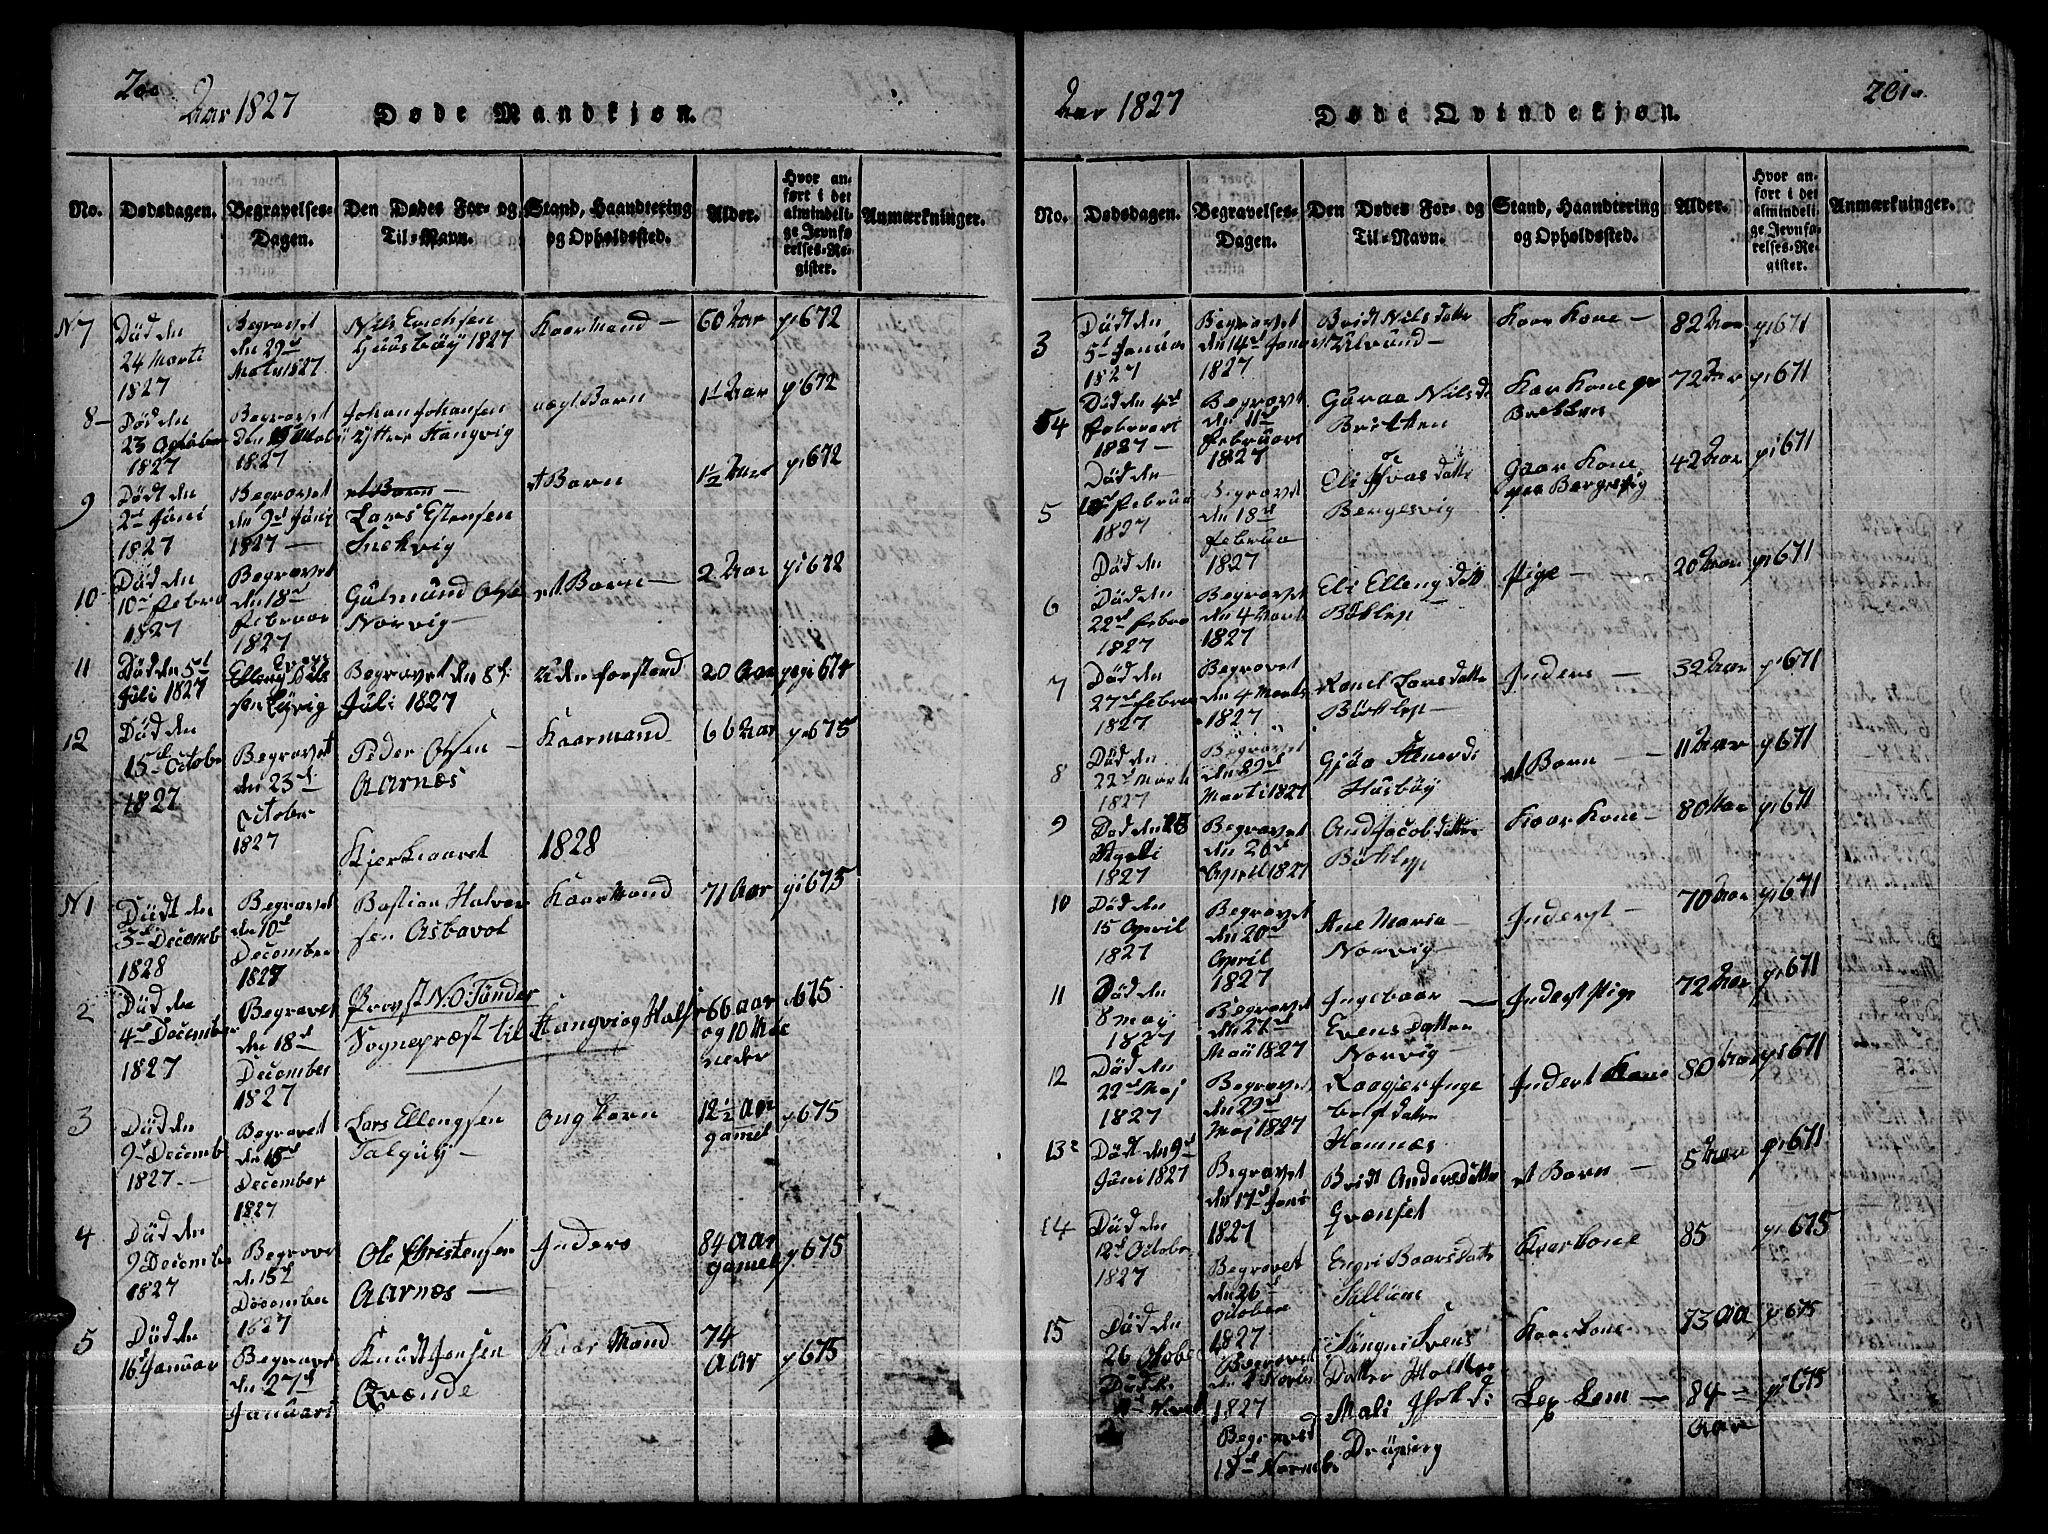 200
Aar 1827
Døde Mandkjøn.
No.
Dødsdagen.
Begravelses-Dagen.
Den Dødes For- og Til-Navn.
Stand, Haandtering og Opholdssted.
Alder.
Hvor anført i det almindelige Jevnførelses-Register.
Anmærkninger.
N 7
Død den 24 Marti 1827
Begravet den 29d 1827
Nils Erichsen Huusbøÿ 1827
Kaarmand
60 Aar
p 672
8
Død den 23 October 1827
Begravet 1827
Johan Johansen Ytter Stangvig
Barn
1 Aar
p 672
9
Dødt den 2d Juni 1827
Begravet den 9d Juni 1827
Lars Estensen Snekvig
et Barn
1½ Aar
p 672
10
Død den 10d Febru 1827
Begravet den 18d Februar 1827
Gulmund Olse Norvig
et Barn
2 Aar
p 672
11
Død den 5d Juli 1827
Begravet den 8d Juli 1827
Uden forstand
20 Aar
p 674
12
Død den 15d Octobe 1827
Begravet den 23d October 1827
Peder Olsen Aarnæs
Kaarmand
66 Aar
p 675
Kjerkeaaret 1828
N 1
Dødt den 3d Decemb 1828
Begravet den 10d December 1827
Bastian Halvorsen Asbøvol
Kaarmand
71 Aar
p 675
2
Død den 4d December 1827
Begravet den 18d December 1827
Provst N. O. Tønder Sognepræst til Stangvig og Halse
66 aar og 10 Maaneder
p 675
3
Død den 9d Decemb 1827
Begravet den 15d December 1827
Lars Ellengsen Talgøÿ
ong karn
12½ Aar gamel
p 675
4
Død den 9 Decembe 1827
Begravet den 15d December 1827
Ole Christensen Aarnæs
Inders
84 Aar gamel
p 675
5
Død den 16d Januar
Begravet den 27d Januari
Knudt Jensen Qvænde
Kaar Mand
74 Aar
p 675
Aar 1827
Døde Qvindekjøn.
201
No.
Dødsdagen.
Begravelses-Dagen.
Den Dødes For- og Til-Navn.
Stand, Haandtering og Opholdssted.
Alder.
Hvor anført i det almindelige Jevnførelses-Register.
Anmærkninger.
3
Dødt den 5d Januar 1827
Begravet den 14d Januar 1827
Bridt Nilsdatter Ulvund
Kaar Kone
82 Aar
p 671
4
Død den 4d Februari 1827
Begravet den 11d Februari 1827
Guraa Nilsd Brøtten
Kaar Kone
72 Aar
p 671
5
Død den Februa 1827
Begravet den 18d Februa 1827
Eli datter Bergesvig
Gaar Kone Bergesvig
42 Aar
p 671
6
Død den 22d Febru 1827
Begravet den 4 Marti 1827
Eli Ellengsdatt Bøklep
Pige
20 Aar
p 671
7
Død den 27d Februa 1827
Begravet den 4 Marti 1827
Ranel Larsdatter Bøklep
Inders
32 Aar
p 671
8
Død den 22d Marti 1827
Begravet den 29d Marti 1827
Gjøa Husbøÿ
et Barn
11 Aar
p 671
9
Død den Apeli 1827
Begravet den 20d April 1827
And Jacobdatter Bøklep
Kaar Kone
80 Aar
p 671
10
Død den 15 April 1827
Begravet den 20d April 1827
Ane Maria Norvig
Inderst
70 Aar
p 671
11
Død den 8 Maj 1827
Begravet den 27d Maii 1827
Ingebaar Evensdatter Norvig
Inderst Pige
72 Aar
p 671
12
Død den 22d Maj 1827
Begravet den 29d Maj 1827
Ingebolsdatter Hamnæs
Inderst Kone
80 Aar
p 671
13
Dødt den 9d Juni 1827
Begravet den 17d Juni 1827
Bridt Andersdatter Grønset
et Barn
5 Aar
p 671
14
Død den 12d Octobe 1827
Begravet den 26d October 1827
Engri Baarsdatter
Kaarkone
85
p 675
15
Død den 26 Otobe
Begravet 1827
Datter
Kaarkone
73 Aa
p 675
Begraved 18d Novembe
Mali
Lem
84 Aar
p 675